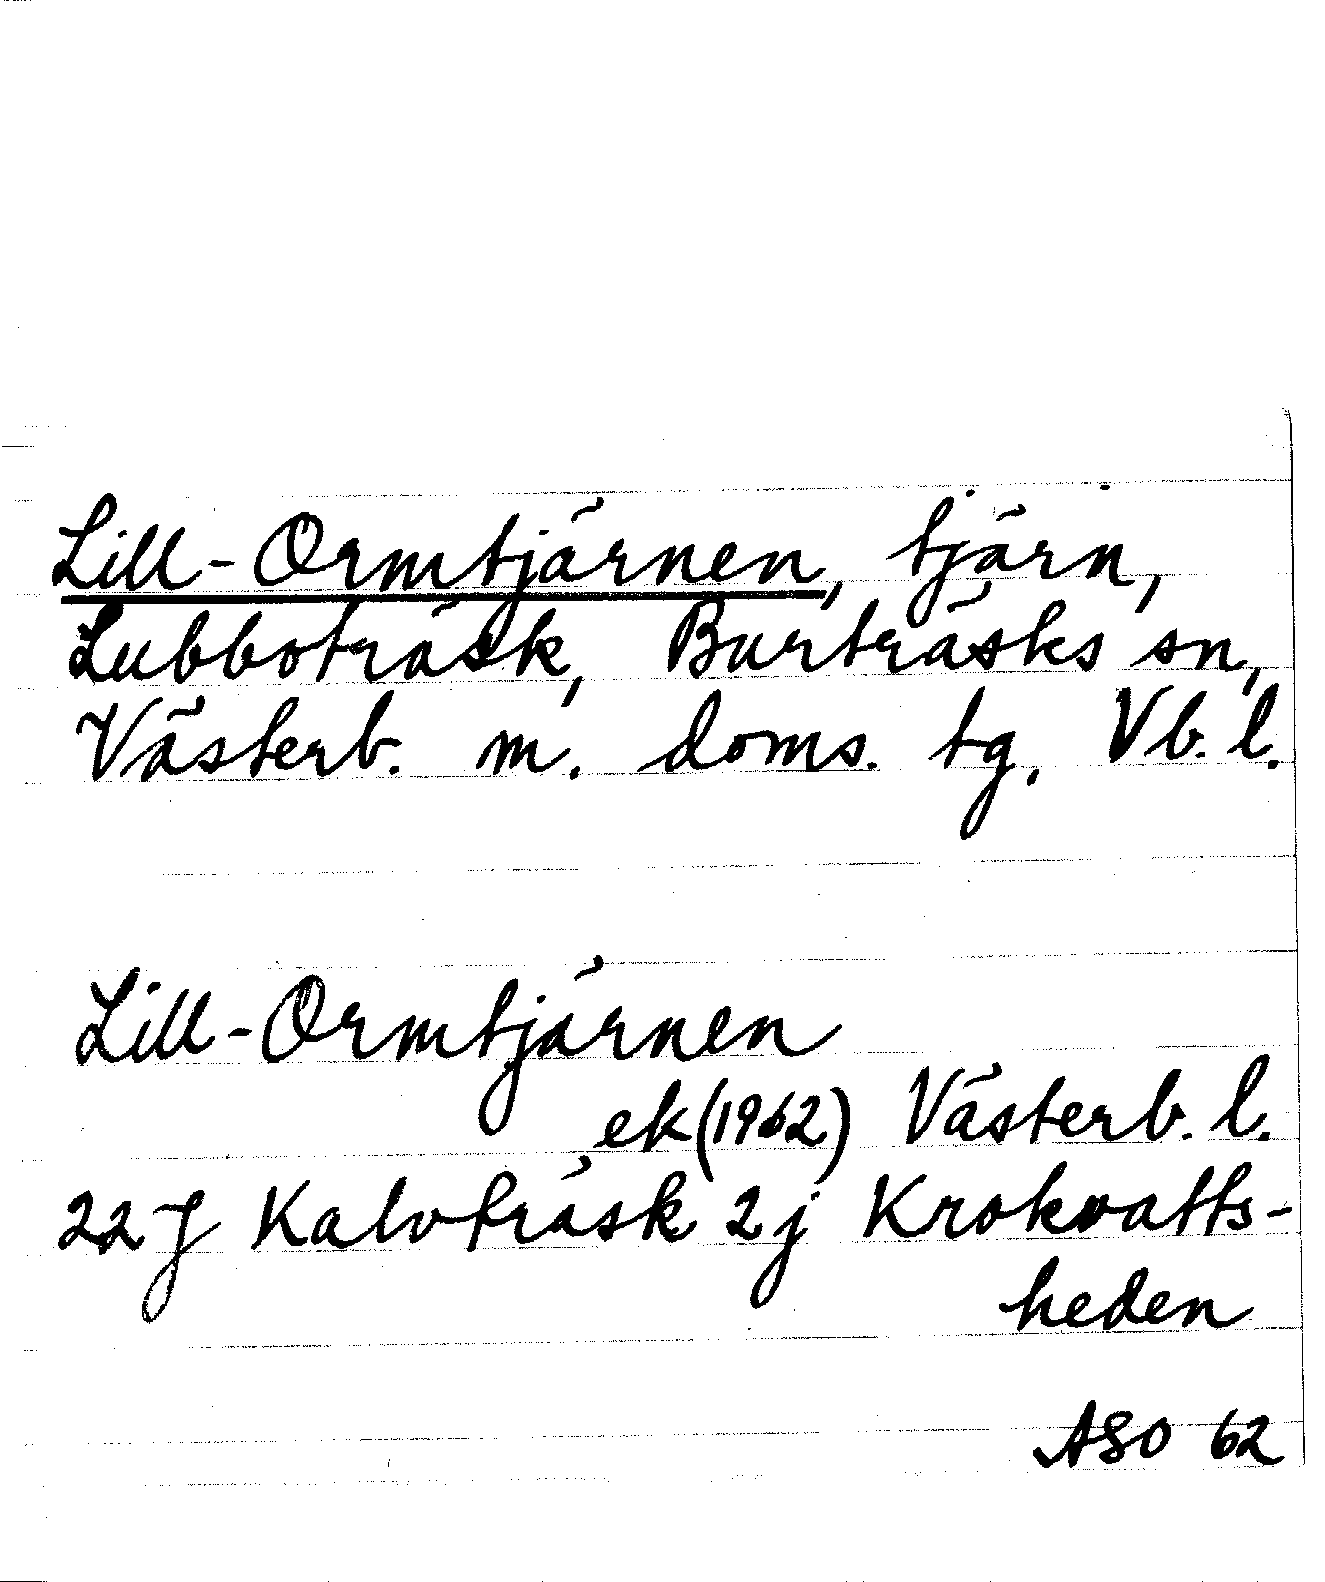 Lill-Ormtjärnen, tjärn,
Lubboträsk, Burträsks sn,
Västerb. m. doms. tg. Vb. l.
Lill-Ormtjärnen
ek (1962) Västerb. l.
22 J Kalvträsk 2 j Krokvatts-
heden
ASO 62